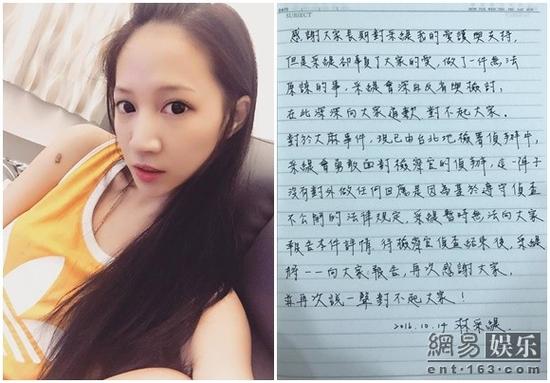 SUBJECT
感謝大家長期對采緹我的愛護與支持,
但是采緹卻辜負了大家的愛,做了一件無法
原諒的事,采緹會深自反省與檢討,
在此深深向大家道歉 對不起大家。
對於大麻事件,現已由台北地檢署偵辦中,
采緹會勇敢面對檢察官的偵辦,這一陣子
沒有對外做任何回應是因為基於遵守偵查
不公開的法律規定,采緹暫時無法向大家
報告案件詳情,待檢察官偵查結束後,采緹
將一一向大家報告,再次感謝大家,
並再次說一聲對不起大家!
2016.10.14 采緹
網易娱乐
ent.163.com